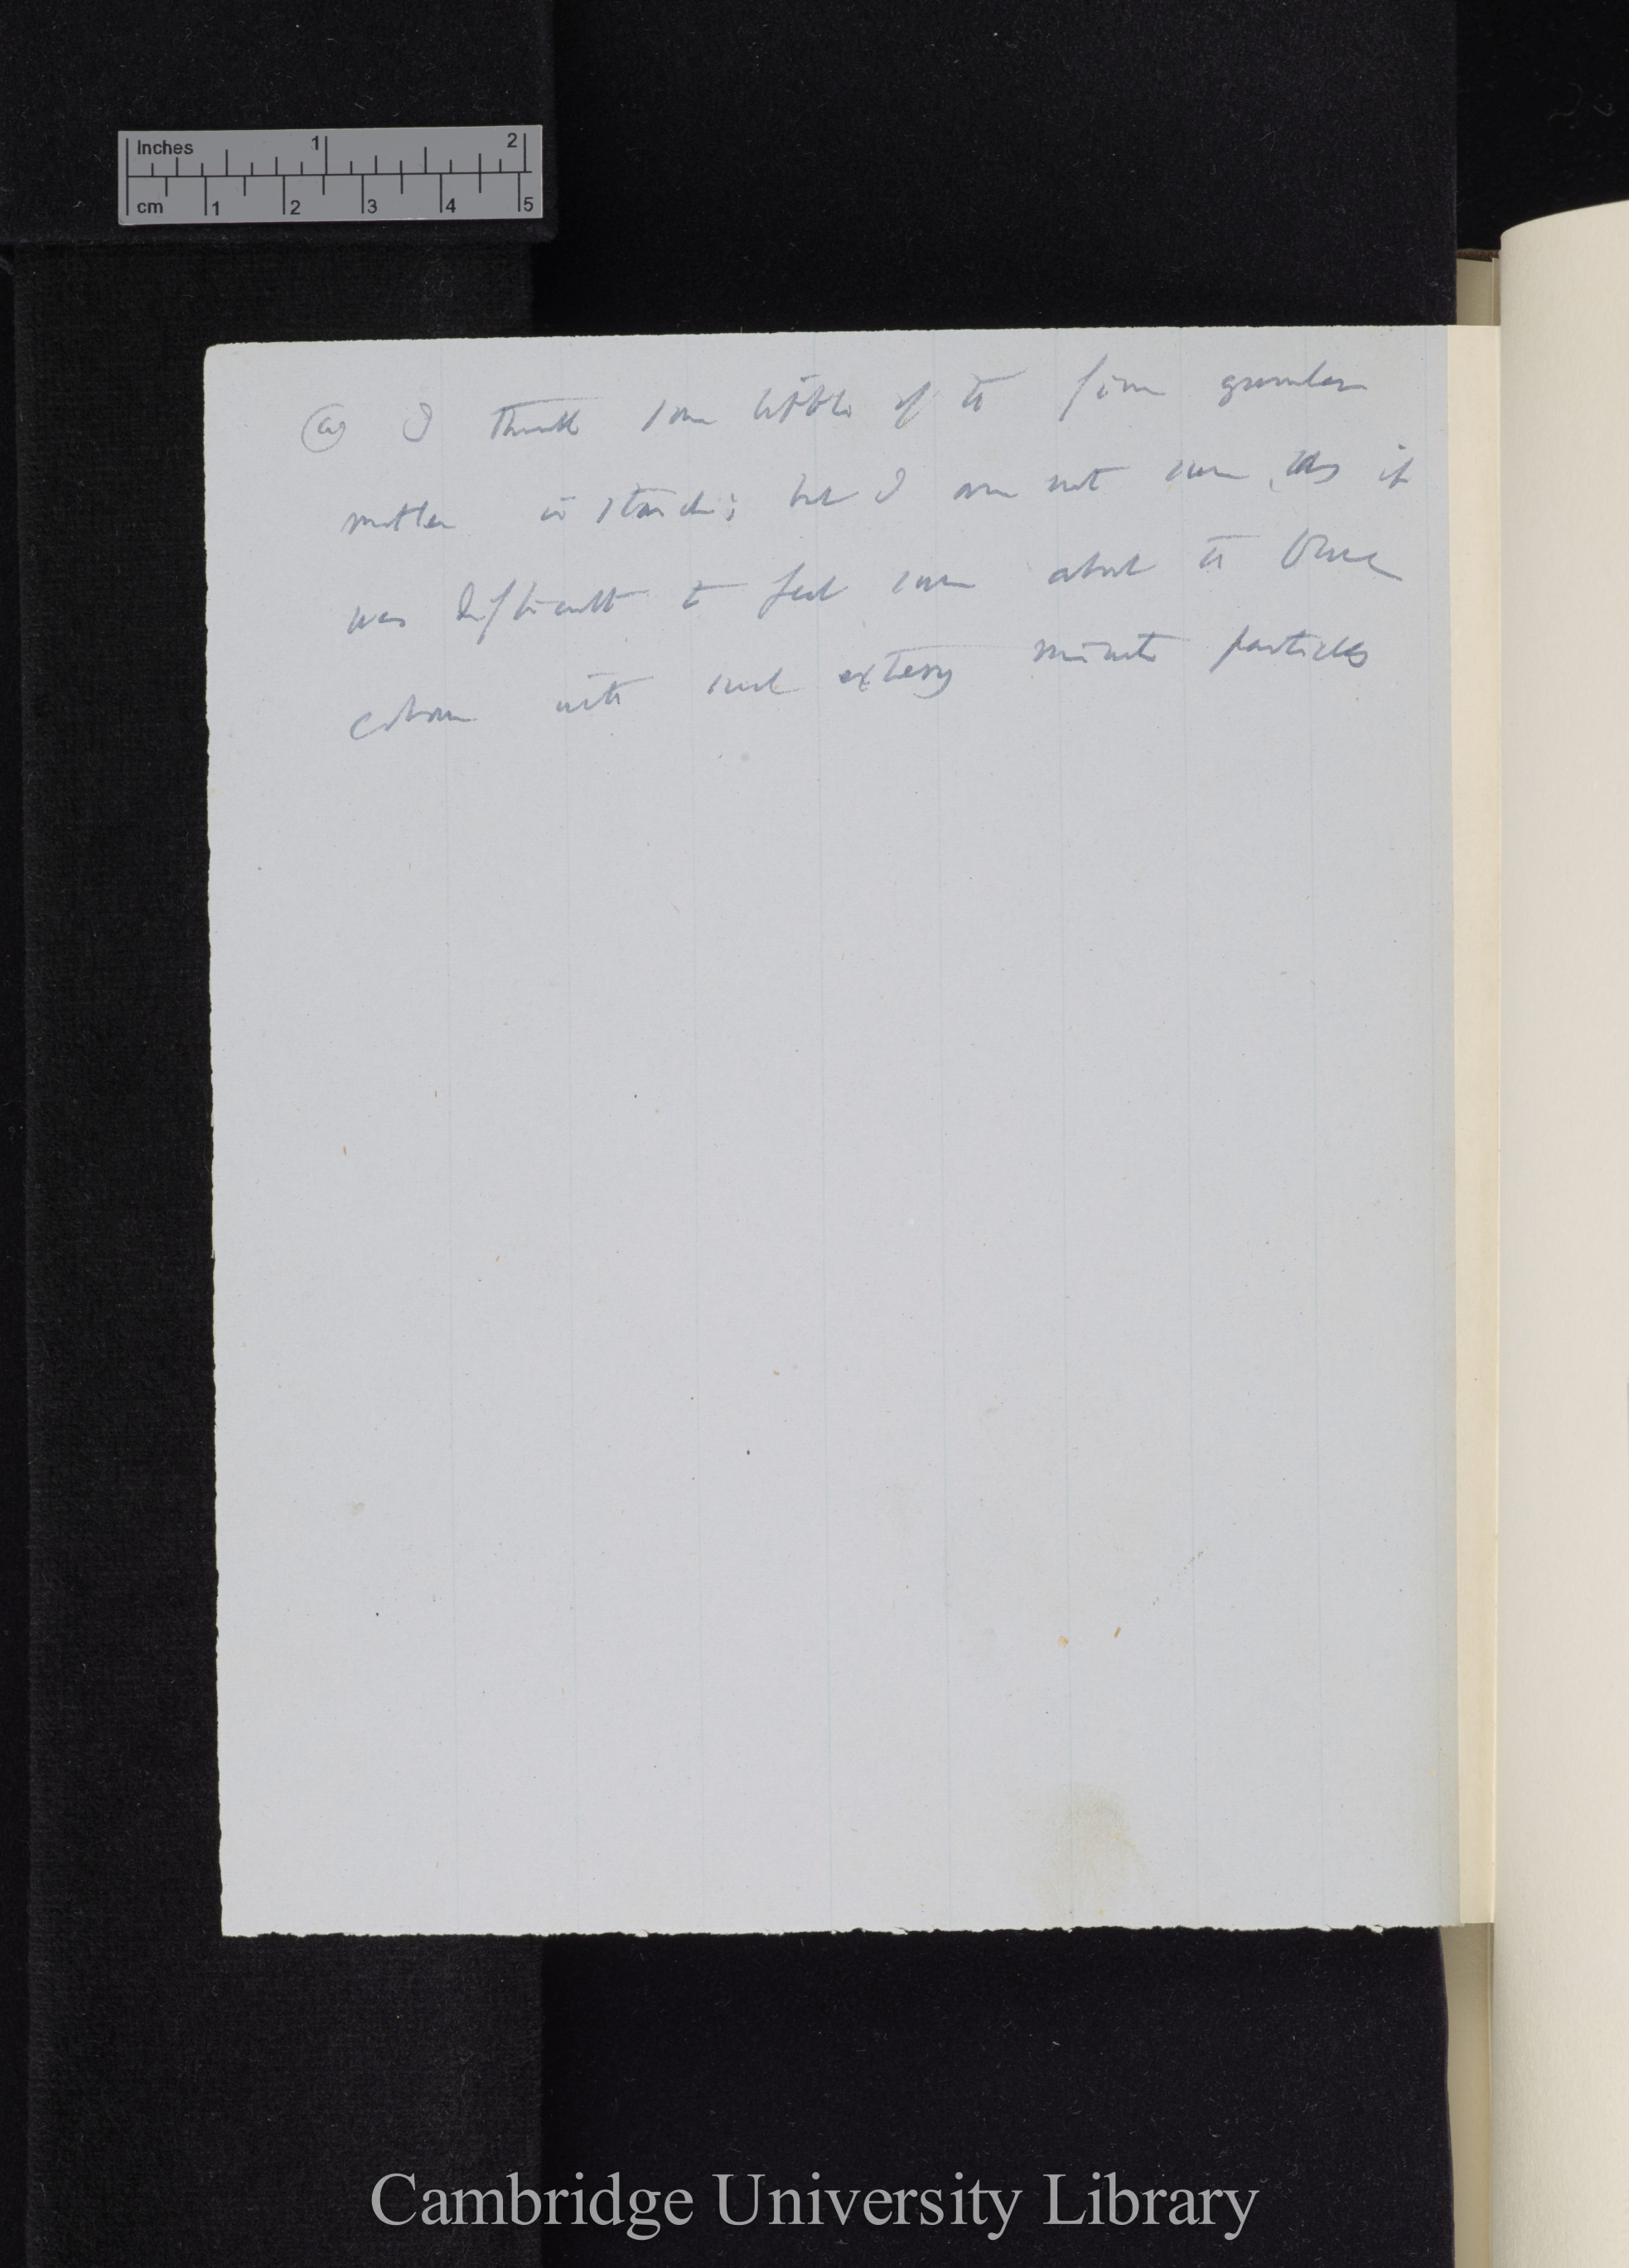 Inches 1 2
cm 1 2 3 4 5
(a) I think some little of the fine granular
matter is starch; but I am not sure, as it
was difficult to feel sure about the blue
colour with such extremely minute particles
Cambridge University Library